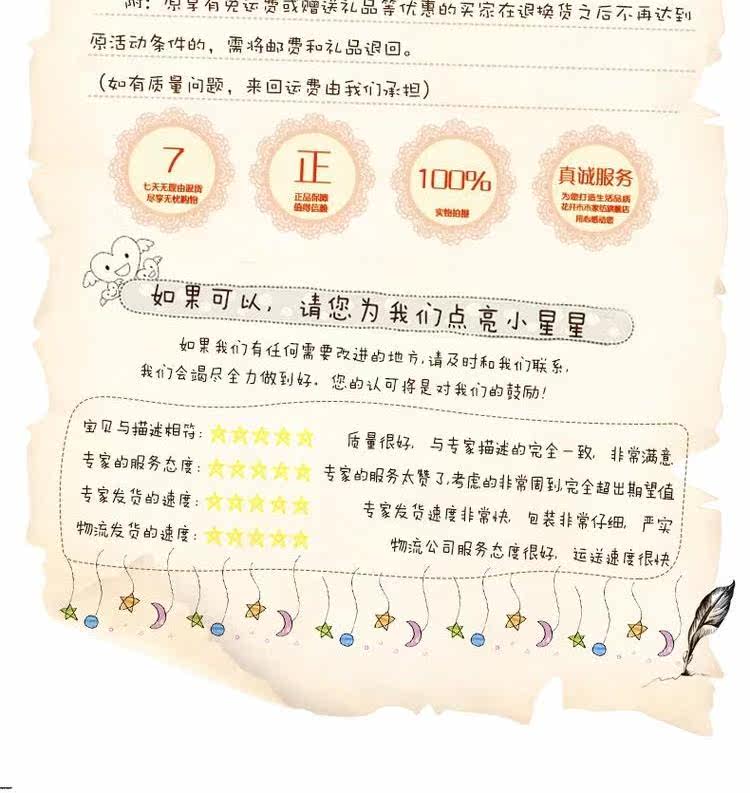 附：原享有免运费或赠送礼品等优惠的买家在退换货之后不再达到
原活动条件的，需将邮费和礼品退回。
（如有质量问题，来回运费由我们承担）
7
七天无理由退货
尽享无忧购物
正
正品保障
值得信赖
100%
实物拍摄
真诚服务
为您打造生活品质
花开市市家纺旗舰店
用心感动您
如果可以，请您为我们点亮小星星
如果我们有任何需要改进的地方,请及时和我们联系,
我们会竭尽全力做到好，您的认可将是对我们的鼓励!
宝贝与描述相符: 质量很好，与专家描述的完全一致，非常满意
专家的服务态度: 专家的服务太赞了,考虑的非常周到,完全超出期望值
专家发货的速度: 专家发货速度非常快，包装非常仔细，严实
物流发货的速度: 物流公司服务态度很好，运送速度很快